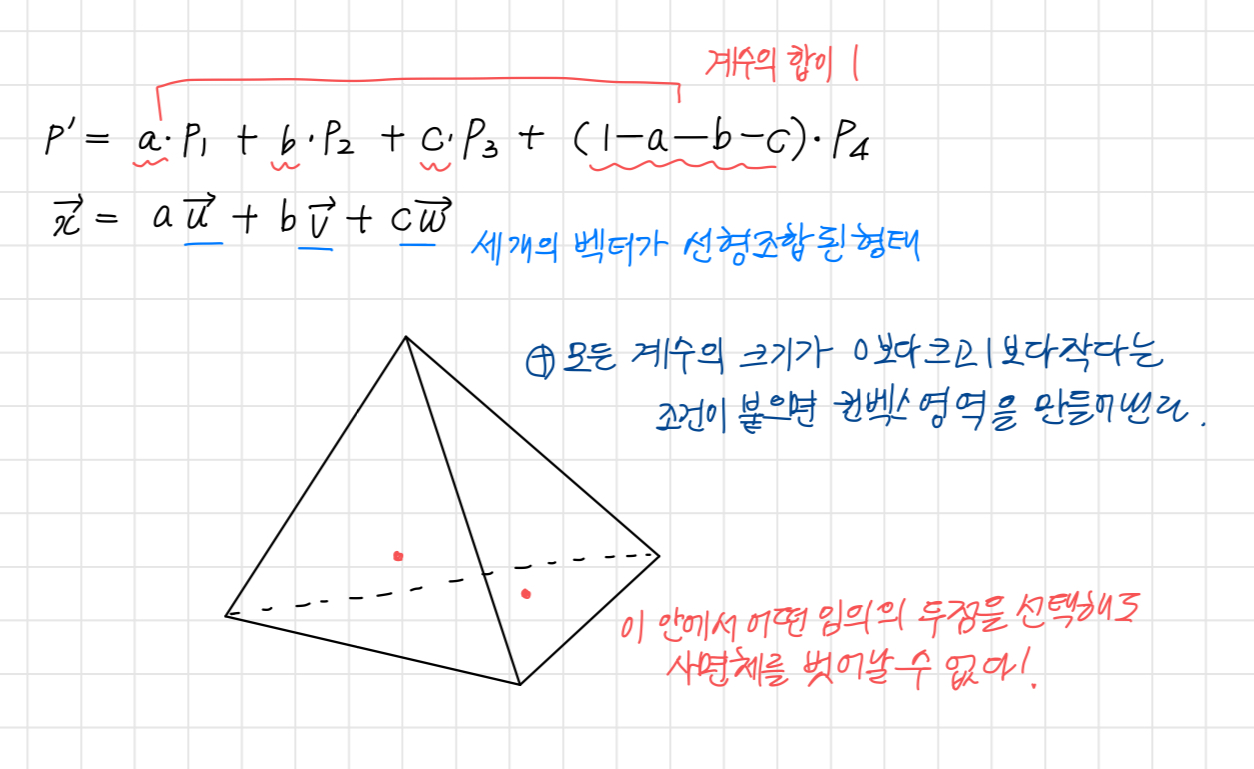 계수의 합이 1
P' = a·P₁ + b·P₂ + c·P₃ + (1-a-b-c)·P₄
x⃗ = au⃗ + bv⃗ + cw⃗
세개의 벡터가 선형조합된형태
⊕ 모든 계수의 크기가 0보다크고1보다작다는
조건이 붙으면 컨벡스영역을 만들어낸다.
이 안에서 어떤 임의의 두점을 선택해도
사면체를 벗어날 수 없다!.